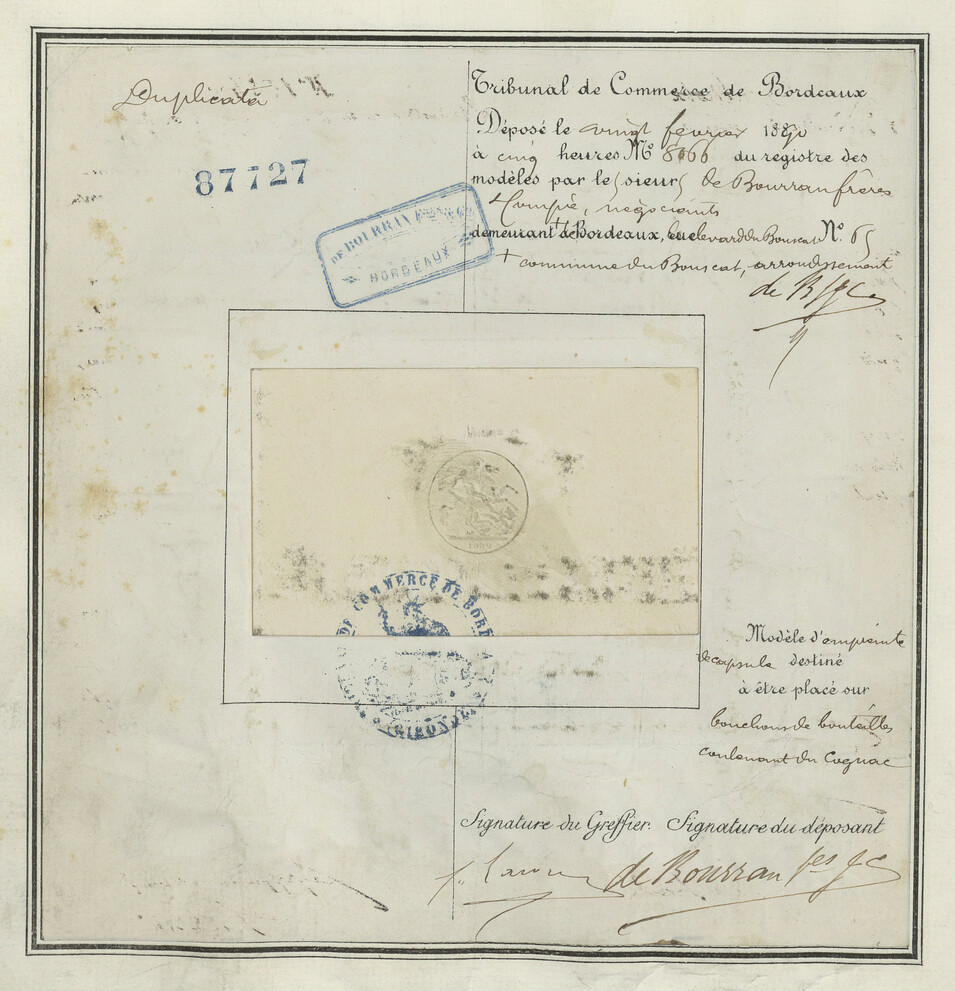 Duplicata
87727
DE BOURRAN
BORDEAUX
Tribunal de Commerce de Bordeaux
Déposé le vingt février 1890
à cinq heures No 8066 du registre des
modèles par les sieurs de Bourran frères
négociants
demeurant à Bordeaux, boulevard du Bouscat No 65
+ commune du Bouscat, arrondissement
de B
COMMERCE DE BORD
GIRONDE
Modèle d'empreinte
de capsule destiné
à être placé sur
bouchons de bouteilles
contenant du Cognac
Signature du Greffier. Signature du déposant
de Bourran